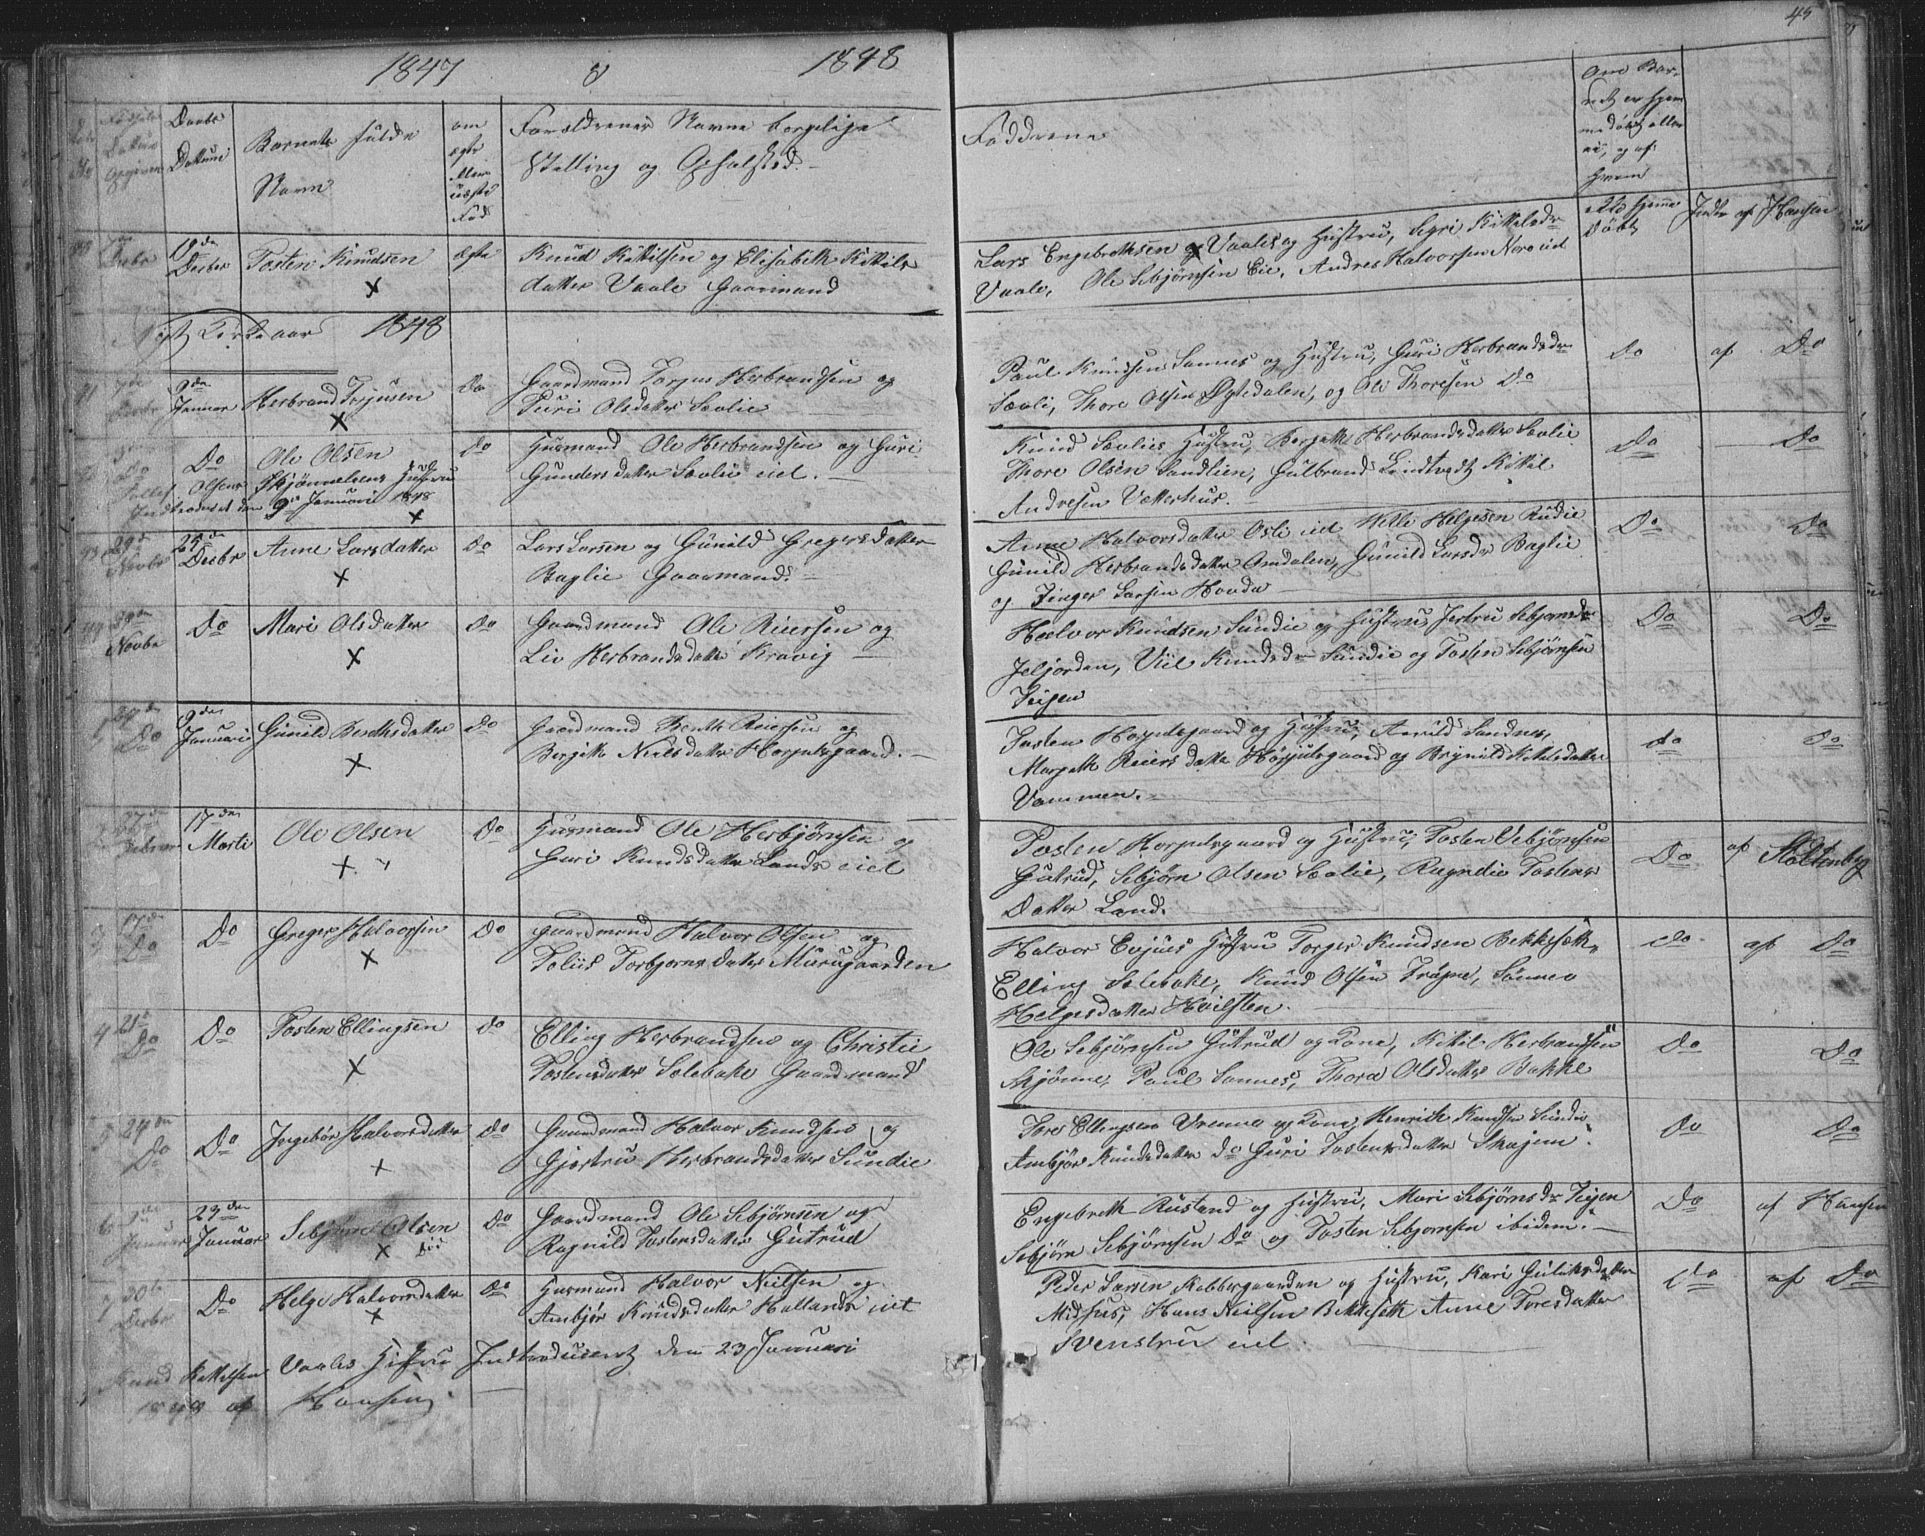 1847 & 1848
45
Daabs Datum
Barnets fulde Navn
om ægte eller uægte Fød
Forældrenes Navne borgelige Stilling og Opholdsted.
Faddrene
Om Barnet er hjemmedøbt eller ei, og af hvem
Debr 19de Decbr Tosten Knudsen ægte Knud Kittilsen og Elisabeth Kittils
datter Vaale Gaarmand
Lars Engebrethsen Vaalie og Hustru, Sigri Kittelsdr
Vaale, Ole Sebjørnsen Eie, Andres Halvorsen Nore eiet
ikke hjemme Døbt Indtr af Hansen
Nyt Kirkeaar 1848
9de Januar Herbrand Torjusen Do Gaardmand Torgus Herbrandsen og
Turi Olsdatter Sævlie
Paul Knudsen Sannes og Hustru, Guri Herbrandsdr
Sævli, Thore Olsen Øytedalen, og Ole Thoresen Do
Do af Do
Do Ole Olsen Do Husmand Ole Herbrandsen og Guri
Gundersdatter Sævlie eiet.
Olsens Skjønnelsens Hustru
Indtroducert den 9de Januari 1848
Knud Sævlies Hustru, Bergith Herbrandsdatter Sævlie
Thore Olsen Sandlien, Gulbrand Lindtvedt Kittil
Andresen Vetterhus.
Do Do
29de Novbr Decbr Anne Larsdatter Do Lars Larsen og Gunild Gregersdatter
Baglie Gaarmand.
Anne Halvorsdatter Osli eiet Helle Helgesen Rudie
Gunild Herbrandsdatter Omdalen, Gunild Larsdr Baglie
og Larsen Hovda
Do Do
Novbr Do Mari Olsdatter Do Gaardmand Ole Reiersen og
Liv Herbrandsdatter Kravig
Halvor Knudsen Sundie og Hustru Jertru Sebjørnsdr
Jeljorden, Knudsdr Sundie og Tosten Sebjørnsen
Teigen
Do Do
Do 9de Januari Gunild Berthsdatter Do Gaardmand Berth Reiersen og
Bergith Neilsdatter Horpulsgaard.
Tosten Horpulsgaard og Hustru, Arvild Sandnes,
Margeth Reiersdatter Horpulsgaard og Brynild Kittilsdatter
Vammen.
do do
27de Februar 17den Marti Ole Olsen Do Husmand Ole Herbjørnsen og
Guri Knudsdatter Lands eiet
Tosten Horpulsgaard og Hustru, Tosten Sebjørnsen
Gutrud, Sebjørn Olsen Sævlie, Ragndie Tostens
Datter Land.
Do af Stoltenberg
17de Do Do Greger Halvorsen Do Gaardmand Halvor Olsen og
Torbjørnsdatter Murugaarden
Halvor Evjues Hustru Torger Knudsen Bekkeseth,
Elling Solebake, Knud Olsen Frøgne, Sønnev
Helgesdatter Hvilsten.
do af Do
4 21de Do Do Tosten Ellingsen do Elling Herbrandsen og Christie
Tostensdatter Solebake Gaardmand
Ole Sebjørnsen Gutrud og Kone, Kittil Herbransen
Skjønne, Paul Sannes, Thora Olsdatter Bakke
Do Do
5 24den Do Do Ingebør Halvorsdatter Do Gaardmand Halvor Knudsen og
Gjertru Herbrandsdatter Sundie
Tore Ellingsen Vrenne og Kone, Henrik Knudsen Sundie
Ambjør Knudsdatter do Guri Tostensdatter Skajem.
Do Do
6 Januar 23den Januar Sebjørn Olsen død Do Gaardmand Ole Sebjørnsen og
Ragnild Tostensdatter Gutrud
Engebreth Rustand og Hustru, Mari Sebjørnsdr Teigen
Sebjørn Sebjørnsen Do og Tosten Sebjørnsen ibidem.
Do af Hansen
7 30te Decbr Do Helge Halvorsdatter Do Husmand Halvor Neilsen og
Ambjør Knudsdatter Hallands eiet
Peder Larsen Kobbergaarden og Hustru, Kari Guliksdatter
Midhus, Hans Neilsen Bekkeseth Anne Toresdatter
Svenstru eiet
Do af Do
Knud Kittilsen Vaales Hustru Indtroduceret dem 23 Januari
1848 af Hansen.